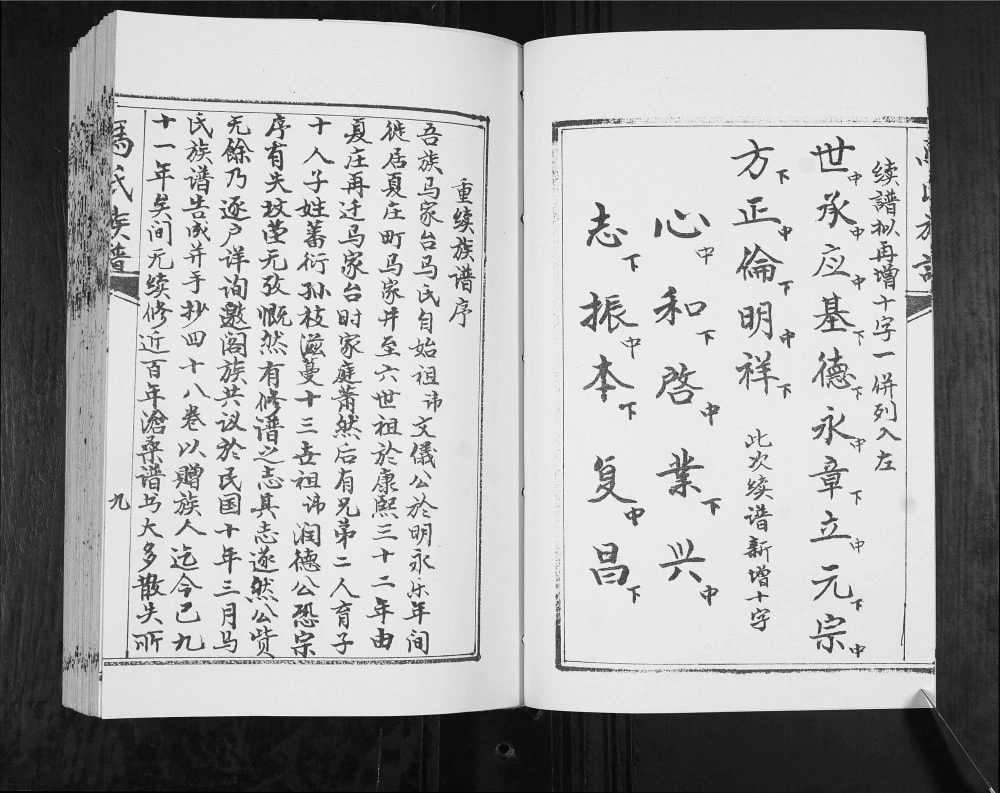 续譜拟再增十字一併列入左
世中承中应中基下德下永中章下立中元下宗中
方下正中倫下明中祥下
此次续谱新增十字
心中和下啓中業下兴中
志下振中本下复中昌下
重续族谱序
吾族马家台马氏自始祖讳文儀公於明永乐年间
徙居夏庄町马家井至六世祖於康熙三十二年由
夏庄再迁马家台时家庭萧然后有兄弟二人育子
十人子姓蕃衍孙枝滋蔓十三世祖讳润德公恐宗
序有失坟茔无攷慨然有修谱之志具志遂然公赀
无餘乃逐户详询邀阖族共议於民国十年三月马
氏族谱告成并手抄四十八卷以赠族人迄今已九
十一年矣间无续修近百年滄桑谱书大多散失所
馮氏族譜
九